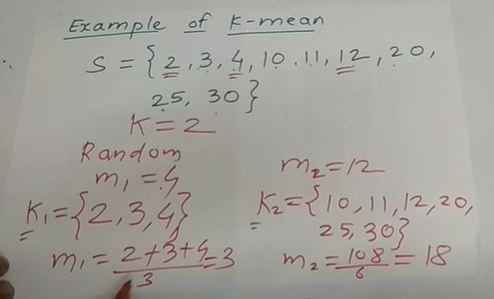 Example of K-mean
S = {2,3,4,10.11,12,20,
25, 30}
K = 2
Random
m₁ = 4
m₂ = 12
K₁ = {2,3,4}
K₂ = {10,11,12,20,
25,30}
m₁ = 2+3+4/3 = 3
m₂ = 108/6 = 18